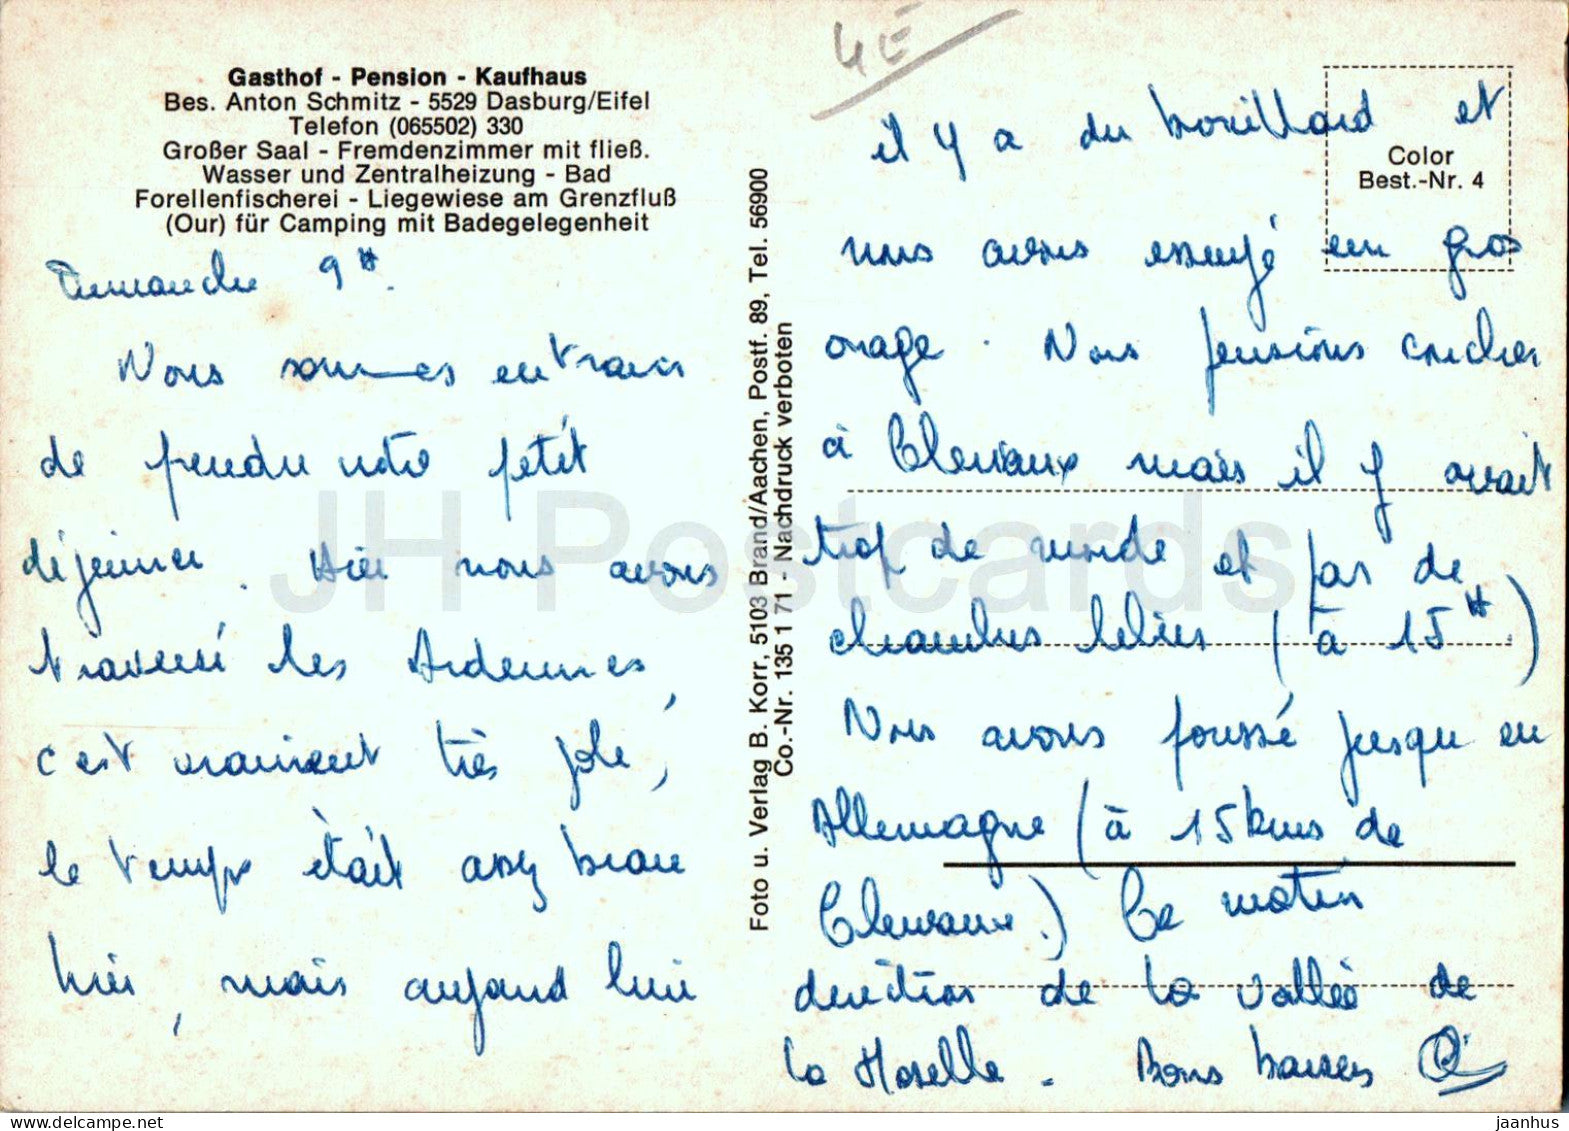 Gasthof - Pension - Kaufhaus
Bes. Anton Schmitz - 5529 Dasburg/Eifel
Telefon (065502) 330
Großer Saal - Fremdenzimmer mit fließ.
Wasser und Zentralheizung - Bad
Forellenfischerei - Liegewiese am Grenzfluß
(Our) für Camping mit Badegelegenheit
Dimanche 9H.
Nous sommes en train
de prendre notre petit
déjeuner. Hier nous avons
traversé les Ardennes,
c'est vraiment très joli,
le temps était assez beau
hier, mais aujourd'hui
Foto u. Verlag B. Korr, 5103 Brand/Aachen, Postf. 89, Tel. 56900
Co.-Nr. 135 1 71 - Nachdruck verboten
4E
Color
Best.-Nr. 4
il y a du brouillard et
nous avons essuyé un gros
orage. Nous pensions coucher
à Clervaux mais il y avait
trop de monde et pas de
chambres libres (à 15H)
Nous avons poussé jusqu'en
Allemagne (à 15kms de
Clervaux.) Ce matin
direction de la vallée de
la Moselle. Bons baisers
JH Postcards
jaanhus